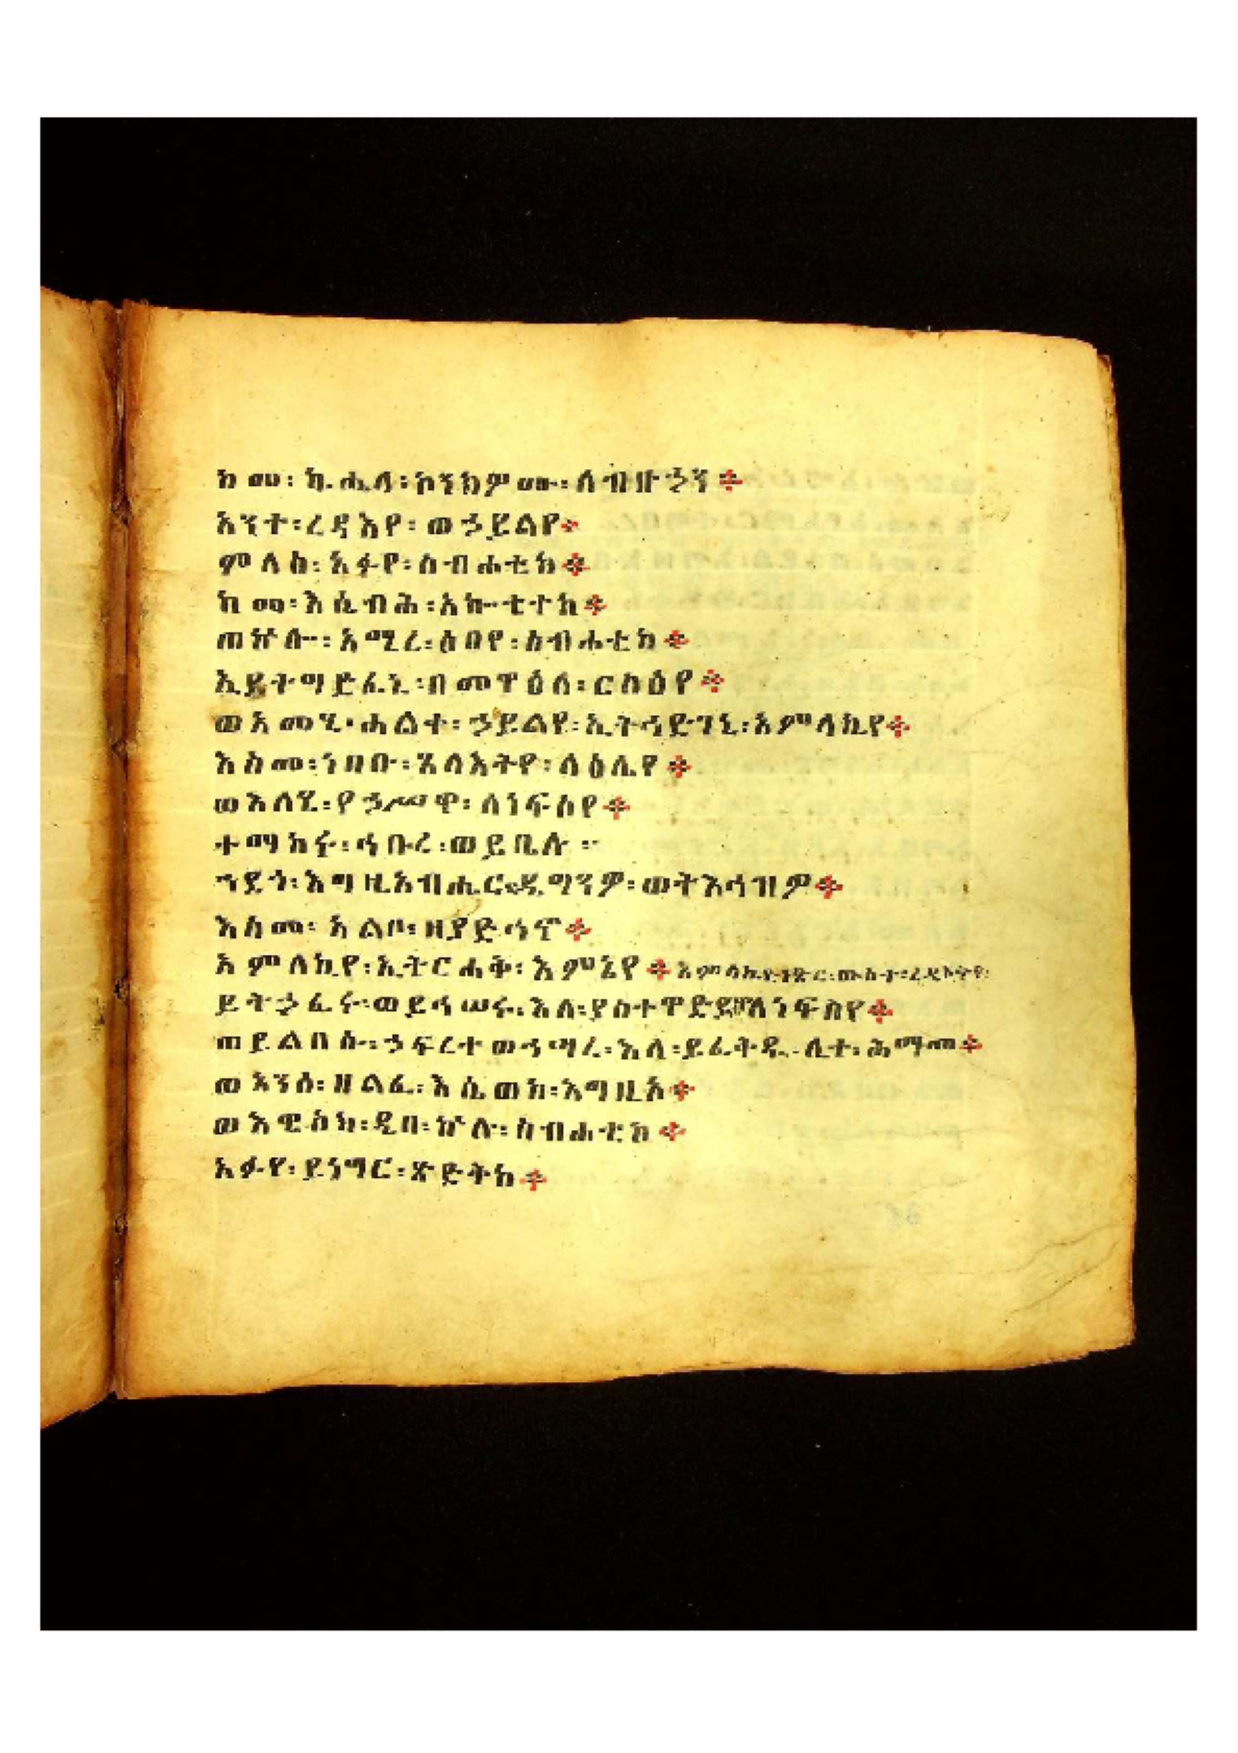 ከመ፡ ኪሒላ፡ ኮንክዎሙ፡ ለብዙኃን፨
አንተ፡ ረዳእየ፡ ወኃይልየ፨
ምላእ፡ አፉየ፡ ስብሐቲከ፨
ከመ፡ እሴብሕ፡ አኩቴተከ፨
ጠኵሉ፡ አሚረ፡ ዕበየ፡ ስብሐቲከ፨
ኢይትግድፈኒ፡ በመዋዕለ፡ ርስዕየ፨
ወአመኂ፡ ሐልቀ፡ ኃይልየ፡ ኢትኅድገኒ፡ አምላኪየ፨
እስመ፡ ነበቡ፡ ጸላእትየ፡ ላዕሌየ፨
ወእለሂ፡ የኃሥዋ፡ ለነፍስየ፨
ተማከሩ፡ ኅቡረ፡ ወይቤሉ፡
ኀደጎ፡ እግዚአብሔር፡ ዴግንዎ፡ ወትእኅዝዎ፨
እስመ፡ አልቦ፡ ዘያድኅኖ፨
አምላኪየ፡ ኢትርሐቅ፡ እምኔየ፨ አምላኪየ፡ ነጽር፡ ውስተ፡ ረዲኦትየ፡
ይትኃፈሩ፡ ወይኅሠሩ፡ እለ፡ ያስተዋድይዋ፡ ለነፍስየ፨
ወይልበሱ፡ ኃፍረተ ወኀሣረ፡ እለ፡ ይፈትዱ፡ ሊተ፡ ሕማመ፨
ወአንሰ፡ ዘልፈ፡ እሴወከ፡ እግዚአ፨
ወእዌስክ፡ ዲበ፡ ኵሉ፡ ስብሐቲከ፨
አፉየ፡ ይነግር፡ ጽድቅከ፨